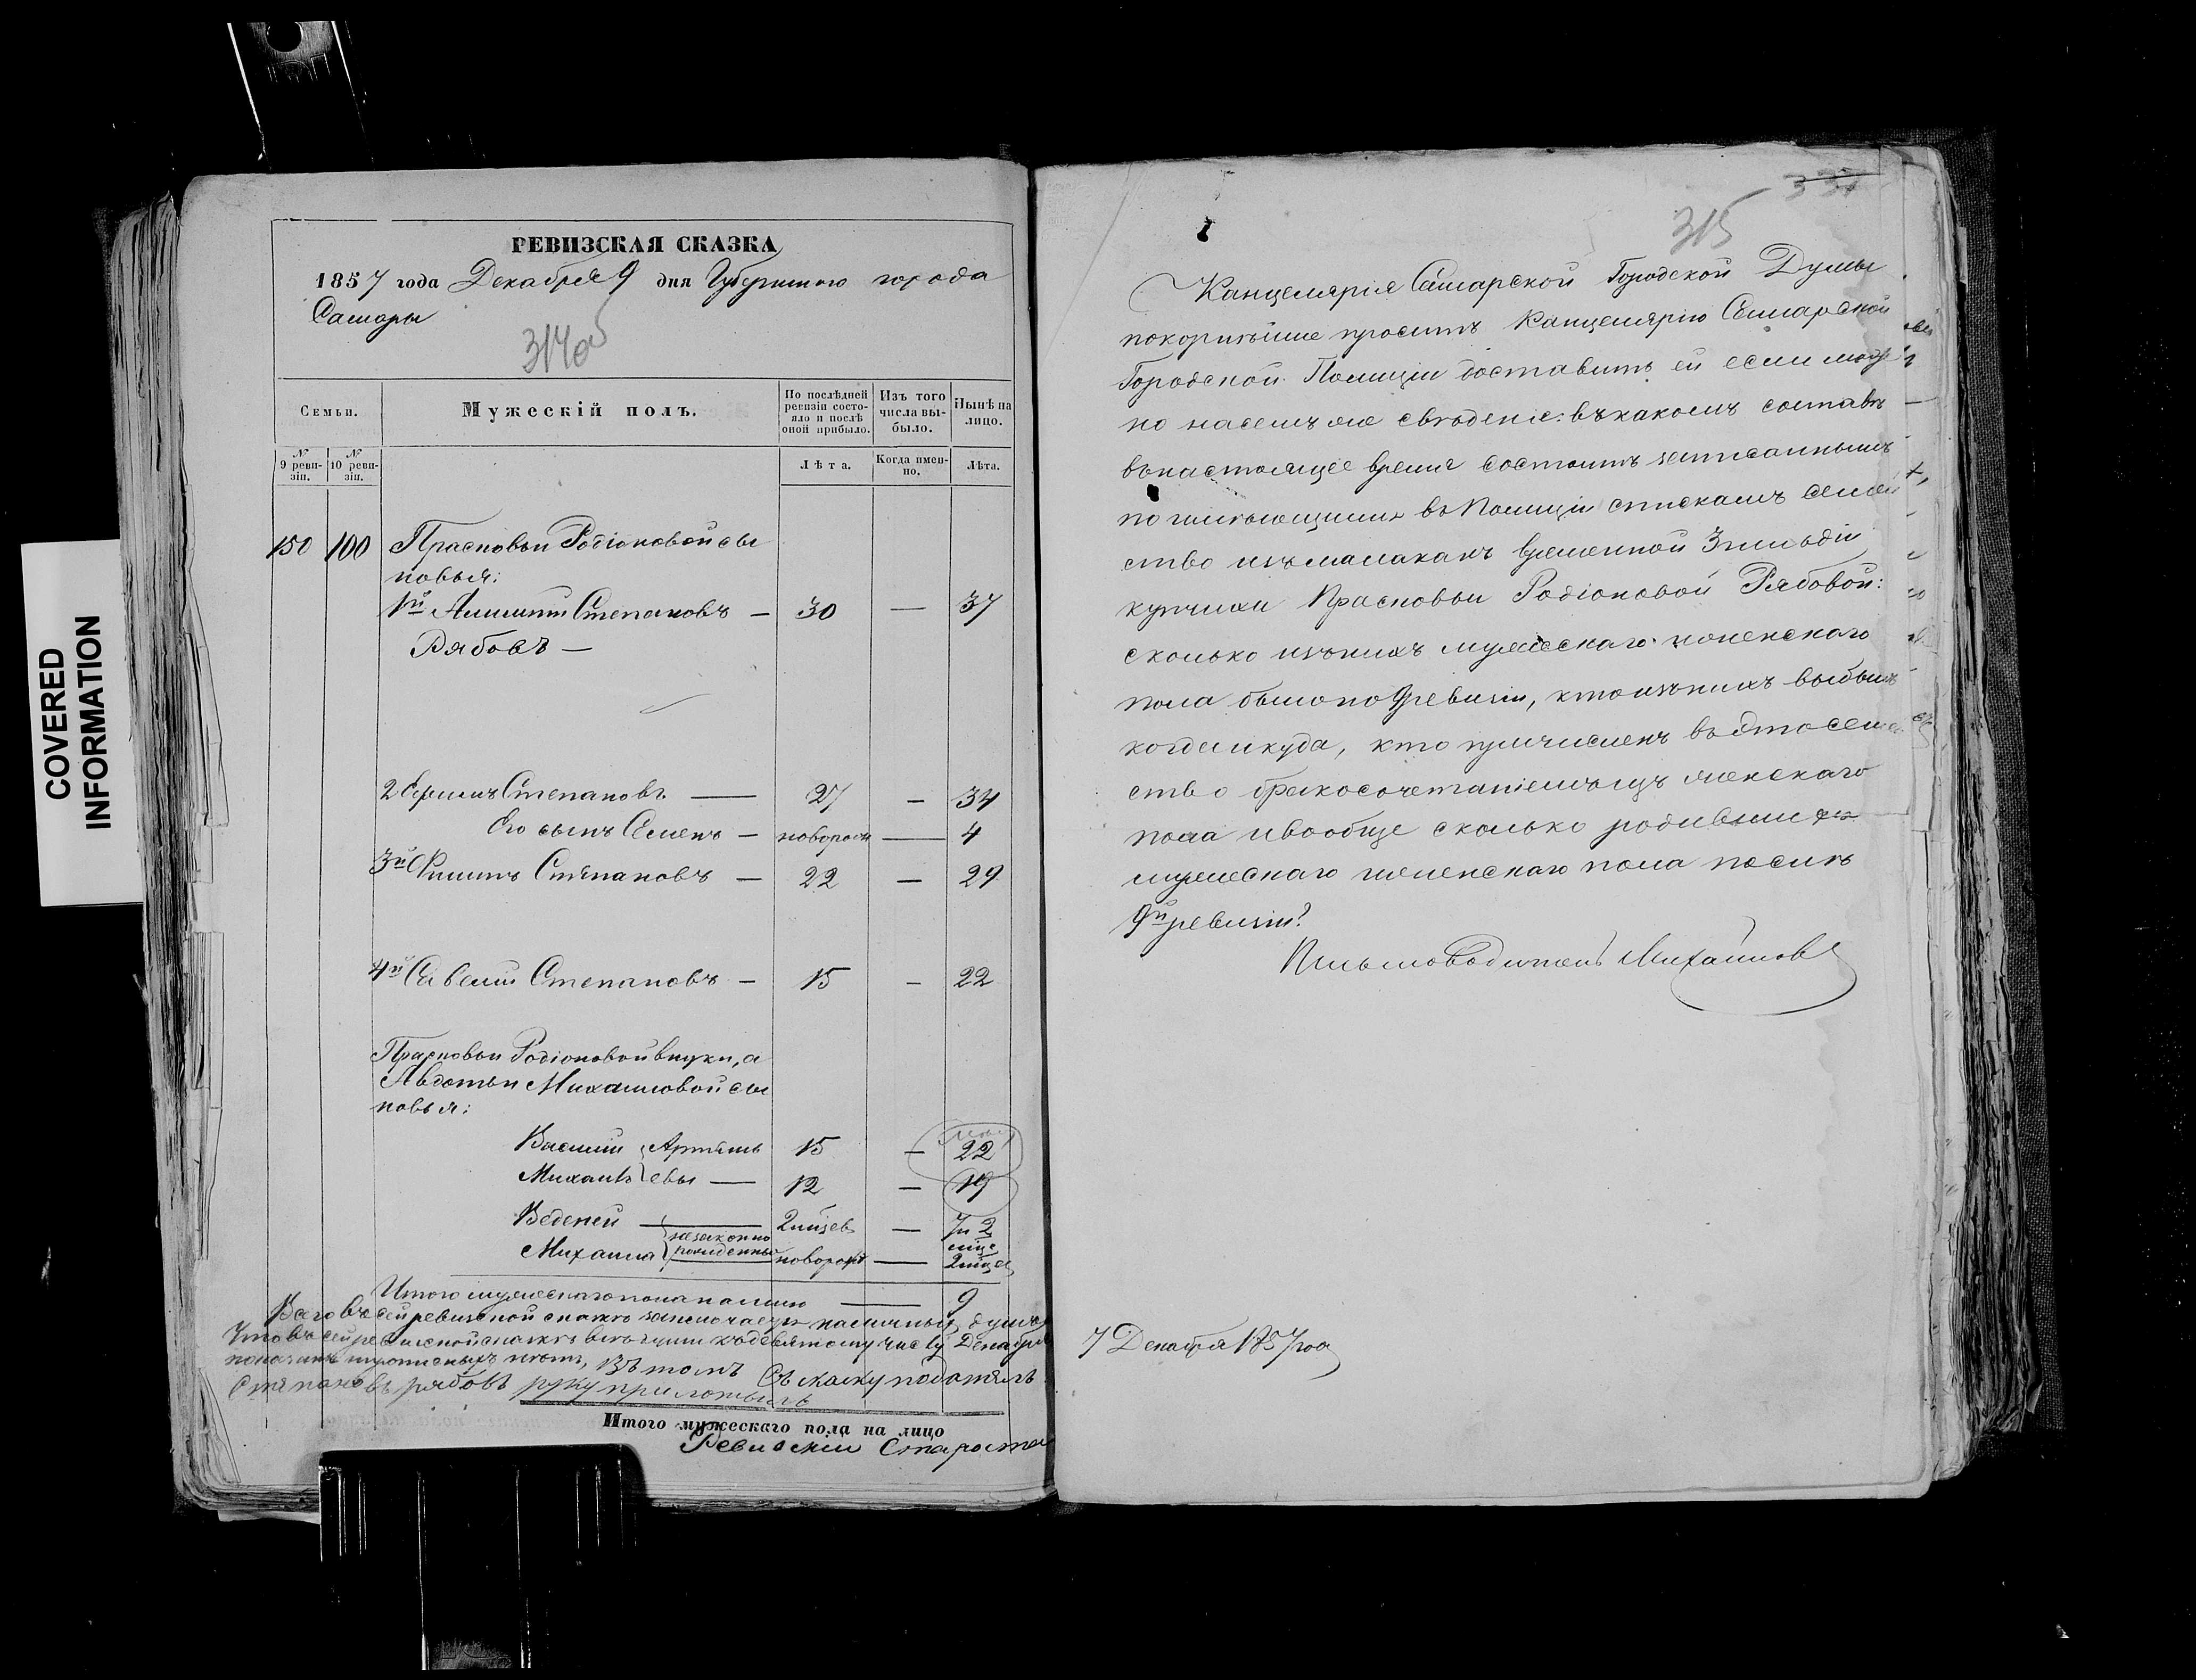 COVERED
INFORMATION
РЕВИЗСКАЯ СКАЗКА
1857 года Декабря 9 дня Губернского города
Самары
314об
Семьи.
Мужескій полъ.
По послѣдней ревизіи состояло и послѣ оной прибыло.
Изъ того числа выбыло.
Нынѣ на лицо.
№ 9 ревизіи.
№ 10 ревизіи.
Лѣта.
Когда именно.
Лѣта.
150 100 Прасковьи Родіоновой сы
новья:
1й Степановъ — 30 — 37
Рябовъ —
2 Ефимъ Степановъ — 27 — 34
Его сынъ Семенъ — новорож — 4
3й Филипъ Степановъ — 22 — 29
4й Савелій Степановъ — 15 — 22
Прасковьи Родіоновой внуки, а
Авдотьи Михайловой сы
новья:
Василій Артемь 15 — 22
Михаилъ евы — 12 — 19
Веденей — 2 мѣсев — 7 и 2
незаконно
мѣс
Михаила рожденные новорож — 2 мѣсе
Итого мужескаго пола на лицо — 9
Всего въ сей ревизской сказкѣ заключается наличныхъ душъ
Что въ сей ревизской сказкѣ къ девятому числу Декабря
въ томъ Съ сказку податель
Степановъ рябовъ руку приложилъ
Итого мужескаго пола на лицо
Ревизскій Староста
315
Канцелярія Самарской Городской Думы
покорнѣйше проситъ Канцелярію Самарской
Городской Полиціи доставить ей если мож
но на семъ же свѣденіе: въ какомъ составѣ
въ настоящее время состоитъ записаннымъ
по имѣющимся въ Полиціи спискамъ семей
ство изъ малаканъ временной 3 гильдіи
купчихи Прасковьи Родіоновой Рябовой:
сколько изъ нихъ мужескаго и женскаго
пола было по 9 ревизіи, кто изъ нихъ выбылъ
когда и куда, кто причисленъ въ это семей
ство бракосочетаніемъ изъ женскаго
пола и вообще сколько родившихся
мужескаго и женскаго пола послѣ
9й ревизіи?
Письмоводитель Михайловъ
7 Декабря 1857 года